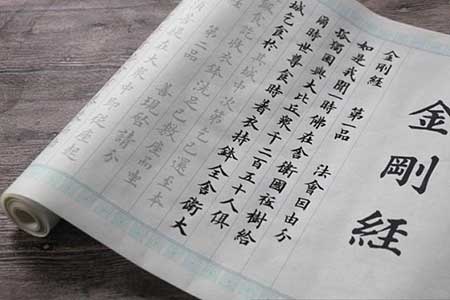 金剛経
金剛経 第一品 法會因由分
如是我聞一時佛在舍衛國祇樹給
孤獨園與大比丘衆千二百五十人俱
爾時世尊食時著衣持鉢入舍衛大
城乞食於其城中次第乞已還至本
飯食訖收衣鉢洗足已敷座而坐
第二品 善現啟請分
在大衆中即從座起